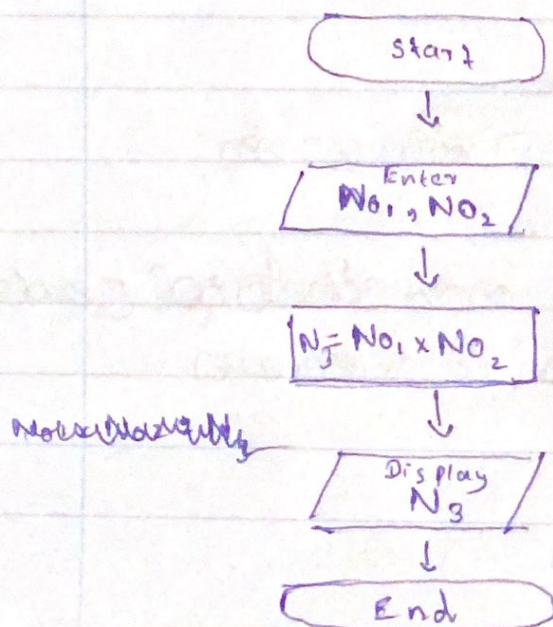 Start
Enter
No₁, NO₂
N₃ = No₁ × NO₂
Display
N₃
End